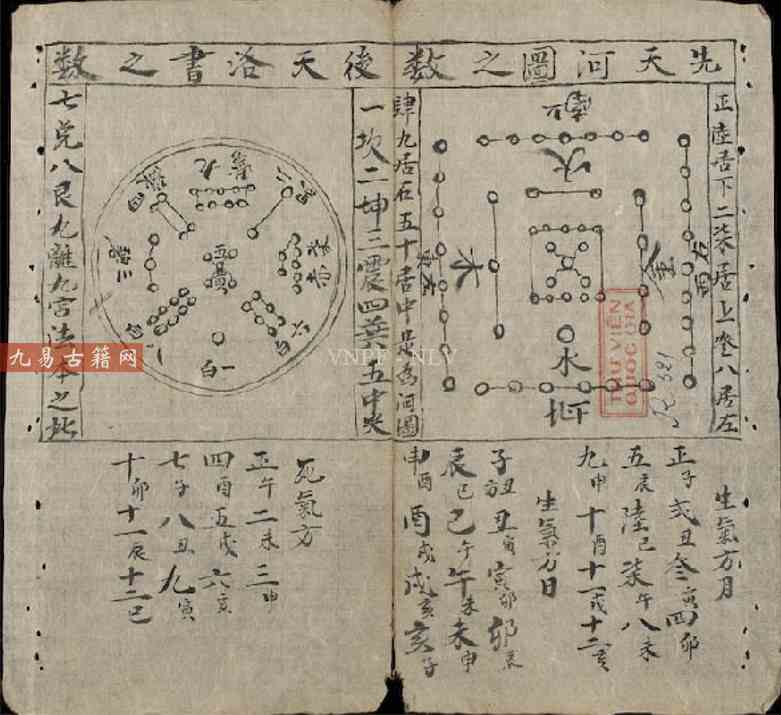 先天河圖之數
後天洛書之數
正陸居下二柒居上叁八居左
肆九居右五十居中是為河圖
一坎二坤三震四巽六五中央
七兌八艮九離九宮法本之此
南
火
木
金
水
北
九
四
二
三
五黃
六白
一白
生氣方月
正子弍丑叁寅四卯
五辰陸巳柒午八未
九申十酉十一戌十二亥
生氣方日
子丑丑寅寅卯卯辰
辰巳巳午午未未申
申酉酉戌戌亥亥子
死氣方
正午二未三申
四酉五戌六亥
七子八丑九寅
十卯十一辰十二巳
THƯ VIỆN
QUỐC GIA
R.321
九易古籍网
VNPF
NLV